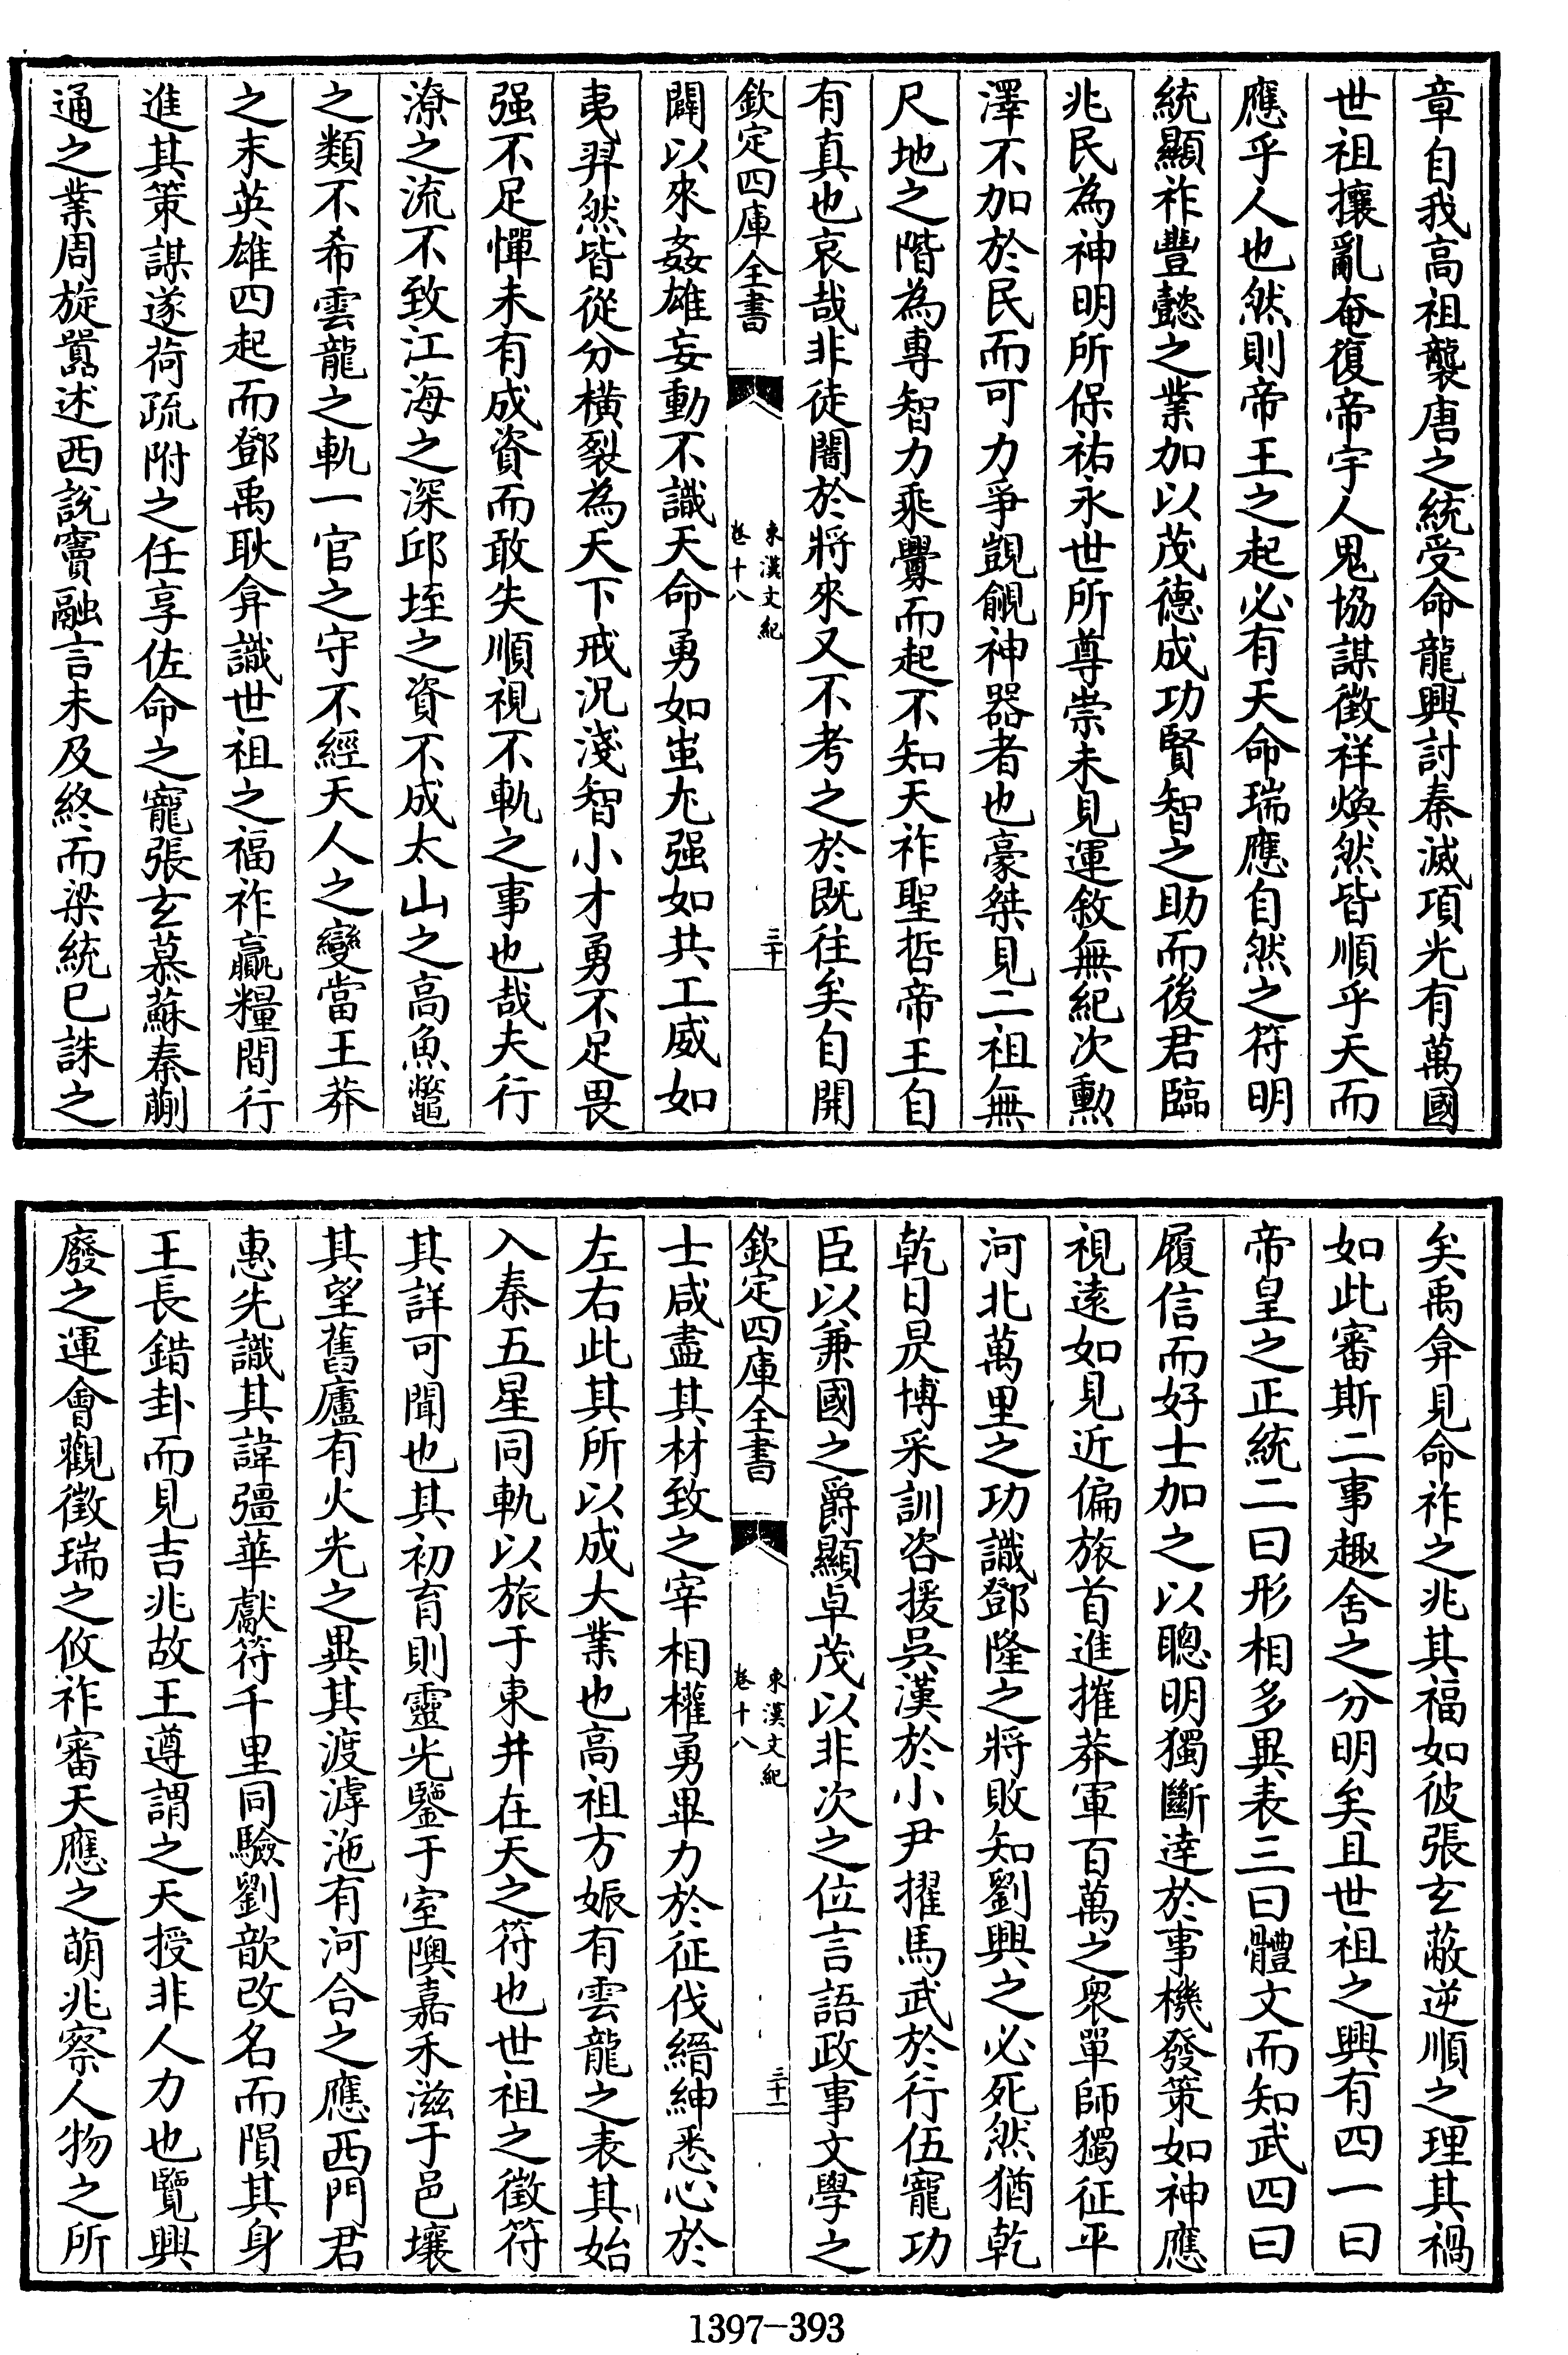 章自我高祖襲唐之統受命龍興討秦滅項光有萬國
世祖攘亂奄復帝宇人鬼協謀徵祥煥然皆順乎天而
應乎人也然則帝王之起必有天命瑞應自然之符明
統顯祚豐懿之業加以茂德成功賢智之助而後君臨
兆民為神明所保祐永世所尊崇未見運敘無紀次勲
澤不加於民而可力爭覬覦神器者也豪桀見二祖無
尺地之階為專智力乘釁而起不知天祚聖哲帝王自
有真也哀哉非徒闇於將來又不考之於既往矣自開
欽定四庫全書
東漢文紀
卷十八
三十
闢以來姦雄妄動不識天命勇如蚩尤强如共工威如
夷羿然皆從分橫裂為天下戒況淺智小才勇不足畏
强不足憚未有成資而敢失順視不軌之事也哉夫行
潦之流不致江海之深邱垤之資不成太山之高魚鼈
之類不希雲龍之軌一官之守不經天人之變當王莽
之末英雄四起而鄧禹耿弇識世祖之福祚贏糧間行
進其策謀遂荷疏附之任享佐命之寵張玄慕蘇秦蒯
通之業周旋嚚述西說竇融言未及終而梁統已誅之
矣禹弇見命祚之兆其福如彼張玄蔽逆順之理其禍
如此審斯二事趣舍之分明矣且世祖之興有四一曰
帝皇之正統二曰形相多異表三曰體文而知武四曰
履信而好士加之以聰明獨斷達於事機發策如神應
視遠如見近偏旅首進摧莽軍百萬之衆單師獨征平
河北萬里之功識鄧隆之將敗知劉興之必死然猶乾
乾日昃博采訓咨援吳漢於小尹擢馬武於行伍寵功
臣以兼國之爵顯卓茂以非次之位言語政事文學之
欽定四庫全書
東漢文紀
卷十八
三十一
士咸盡其材致之宰相權勇畢力於征伐縉紳悉心於
左右此其所以成大業也高祖方娠有雲龍之表其始
入秦五星同軌以旅于東井在天之符也世祖之徵符
其詳可聞也其初育則靈光鑒于室隩嘉禾滋于邑壤
其望舊廬有火光之異其渡滹沲有河合之應西門君
惠先識其諱彊華獻符千里同驗劉歆改名而隕其身
王長錯卦而見吉兆故王遵謂之天授非人力也覽興
廢之運會觀徵瑞之攸祚審天應之萌兆察人物之所
1397-393